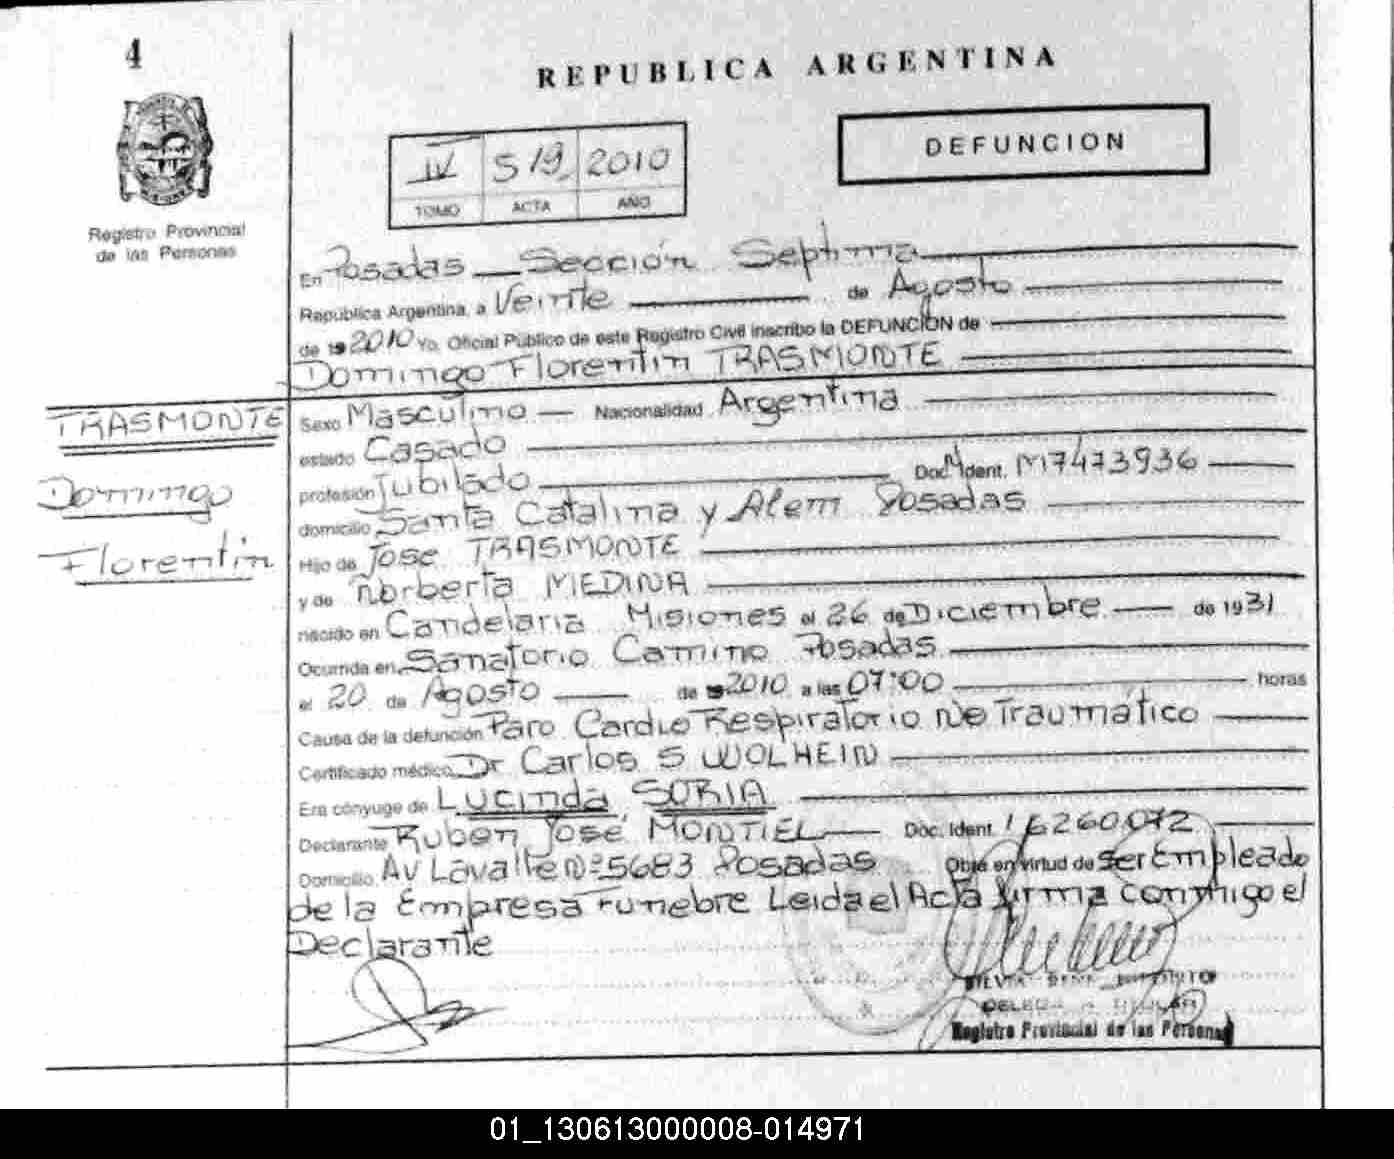 4
REPUBLICA ARGENTINA
Registro Provincial
de las Personas
IV 519 2010
TOMO ACTA AÑO
DEFUNCION
En Posadas Sección Septima
República Argentina, a Veinte de Agosto
de 19 2010 Yo, Oficial Público de este Registro Civil inscribo la DEFUNCION de
Domingo Florentin TRASMONTE
TRASMONTE
Domingo
Florentin
Sexo Masculino Nacionalidad Argentina
estado Casado
profesión Jubilado Doc. Ident. M7473936
domicilio Santa Catalina y Alem Posadas
Hijo de Jose TRASMONTE
y de Norberta MEDINA
nacido en Candelaria Misiones el 26 de Diciembre de 1931
Ocurrida en Sanatorio Camino Posadas
el 20 de Agosto de 2010 a las 07:00 horas
Causa de la defunción Paro Cardio Respiratorio No Traumático
Certificado médico Dr Carlos S WOLHEIN
Era cónyuge de Lucinda SORIA
Declarante Ruben José MONTIEL Doc. Ident. 16260072
Domicilio Av Lavalle Nº 5683 Posadas Obra en virtud de ser Empleado
de la Empresa Funebre Leida el Acta firma conmigo el
Declarante
SILVIA
Registro Provincial de las Personas
01_130613000008-014971